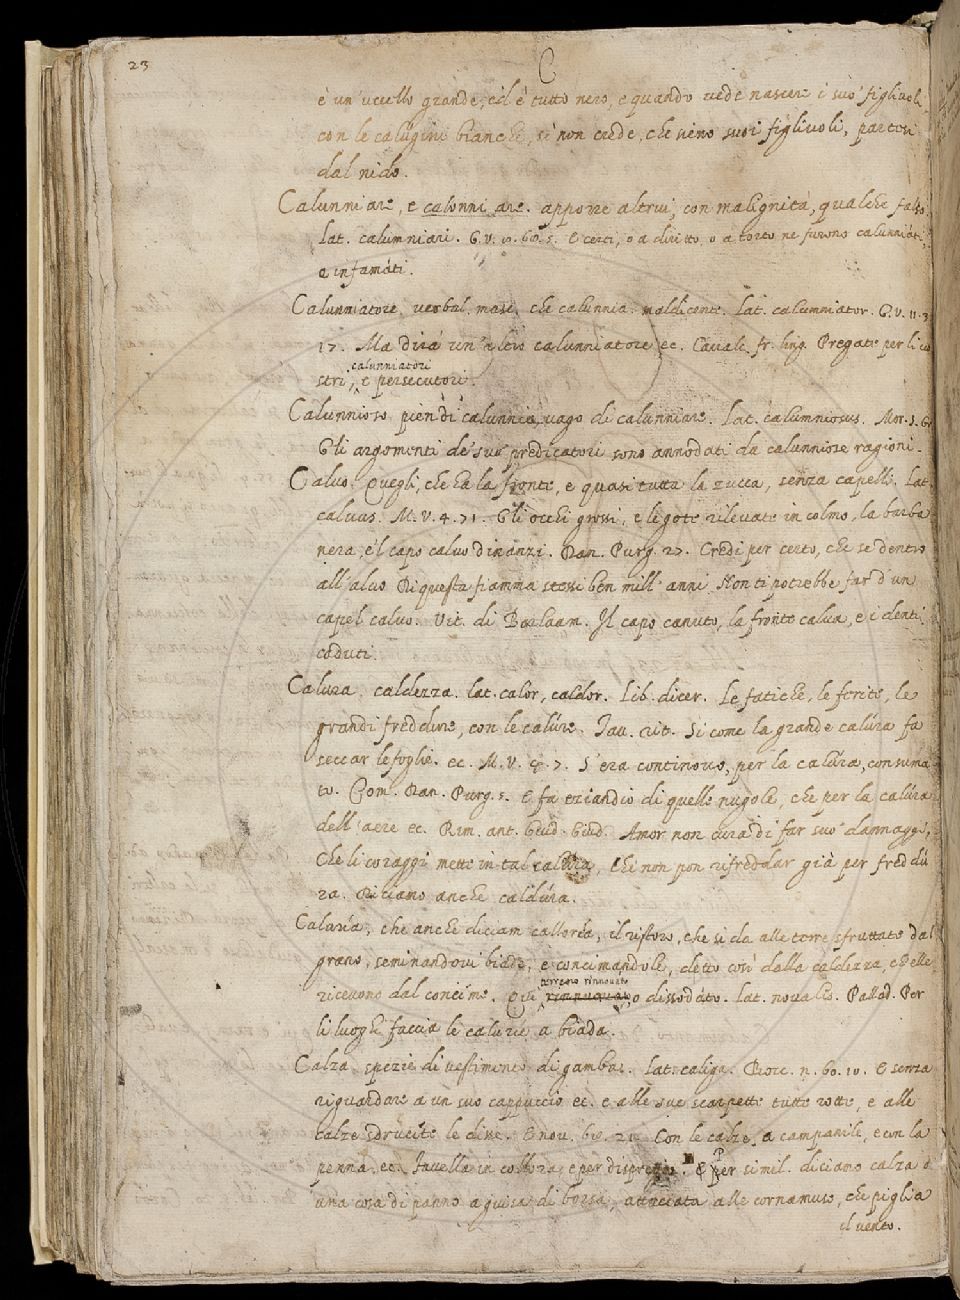 23
C
è un uccello grande, ed è tutto nero, e quando vede nascere i suo' figliuoli
con le calugini bianche, sì non crede, che sieno suoi figliuoli, partesi
dal nido.
Calunniare, e calonniare. apporre altrui, con malignità, qualche falso.
Lat. calumniari. G.V. E certi, o a diritto, o a torto ne furono calunniati,
e infamáti.
Calunniatore, verbal. masc. che calunnia. maldicente. Lat. calumniator. G.V. 11. 3
17. Ma dirà un'altro calunniatore ec. Cavalc. fr. ling. Pregate per li
calunniatori
stri, e persecutori.
Calunnioso. pien di calunnia, vago di calunniare. Lat. calumniosus. Mor. S. G.
Gli argomenti de' suo' predicatori sono annodati da calunniose ragioni.
Calvo. Quegli, che ha la fronte, e quasi tutta la zucca, senza capelli. Lat.
calvus. M.V. 4. 71. Gli occhi grossi, e le gote rilevate in colmo, la barba
nera, e'l capo calvo dinanzi. Dan. Purg. 27. Credi per certo, che se dentro
all'alvo Di questa fiamma stessi ben mill'anni Non ti potrebbe far d'un
capel calvo. Vit. di Barlaam. Il capo canuto, la fronte calva, e i denti
caduti.
Calura. caldezza. Lat. calor, caldor. Lib. dicer. Le fatiche, le ferite, le
grandi freddure, con le calúre. Tav. rit. Sì come la grande calúra fa
seccar le foglie. ec. M.V. 7. S'era continovo, per la calúra, consuma
to. Com. Dan. Purg. 5. E fa eziandio di quelle nugole, che per la calúra
dell'aere ec. Rim. ant. Guid. Giud. Amor non cura di far suo' dannaggi,
Che li coraggi mette in tal calúra, Che non pon rifreddar già per freddú
ra. Diciamo anche caldúra.
Caluria, che anche diciam callorìa, il ristoro, che si dà alle terre sfruttate dal
grano, seminandovi biade, e concimándole, detto così dalla caldezza, ch'elle
terreno rinnovato
ricevono dal concime. Qui rinnuovato, o dissodáto. Lat. novalis. Pallad. Per
li luoghi faccia le calurie a biada.
Calza. spezie di vestimento di gambe. Lat. caliga. Bocc. n. 60. 10. E senza
riguardare a un suo cappuccio ec. e alle sue scarpette tutte rotte, e alle
calze sdrucite le disse. E nov. Con le calze a campanile, e con la
penna ec. favella in collora, e per dispregio. E per simil. diciamo calza a
una cosa di panno a guisa di borsa, attaccata alle cornamuse, che piglia
il vento.